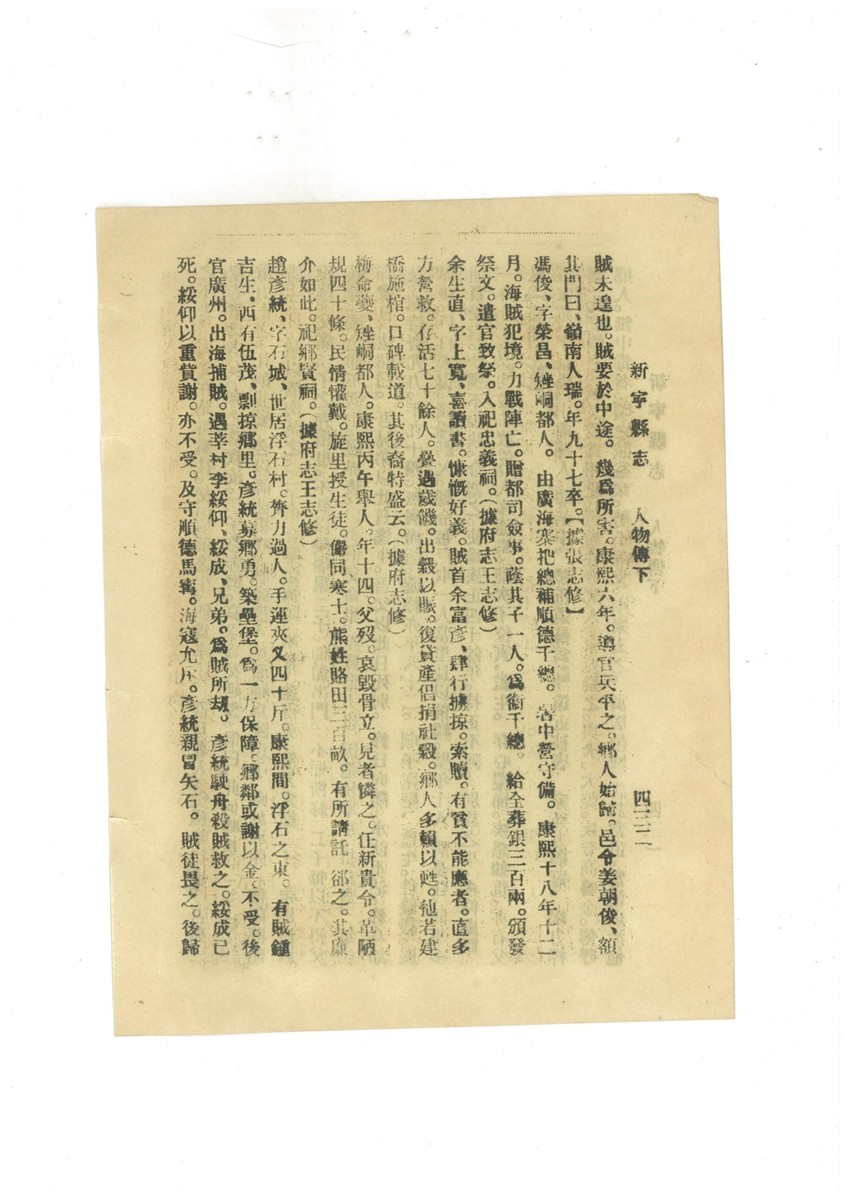 新寧縣志　人物傳下　四三二
賊未遑也。賊要於中途。幾爲所害。康熙六年。導官兵平之。鄉人始歸。邑令姜朝俊、額
其門曰、嶺南人瑞。年九十七卒。【據張志修】
馮俊、字榮昌、矬峒都人。由廣海寨把總補順德千總。署中營守備。康熙十八年十二
月。海賊犯境。力戰陣亡。贈都司僉事。蔭其子一人。爲衞千總。給全葬銀三百兩。頒發
祭文。遣官致祭。入祀忠義祠。（據府志王志修）
余生直、字上寬、喜讀書。慷慨好義。賊首余富彥、肆行擄掠。索贖。有貧不能應者。直多
方營救。存活七十餘人。疊遇歲饑。出穀以賑。復貸產倡捐社穀。鄉人多賴以甦。他若建
橋施棺。口碑載道。其後裔特盛云。（據府志修）
梅命夔、矬峒都人。康熙丙午舉人。年十四。父歿。哀毀骨立。見者憐之。任新貴令。革陋
規四十條。民情懽戴。旋里授生徒。儼同寒士。熊姓賂田三百畝。有所請託、郤之。其廉
介如此。祀鄉賢祠。（據府志王志修）
趙彥統、字石城、世居浮石村。膂力過人。手運夾叉四十斤。康熙間。浮石之東。有賊鍾
吉生、西有伍茂、剽掠鄉里。彥統募鄉勇。築壘堡。爲一方保障。鄉鄰或謝以金、不受。後
官廣州。出海捕賊。遇莘村李綏仰、綏成、兄弟。爲賊所刼。彥統駛舟殺賊救之。綏成已
死。綏仰以重貲謝。亦不受。及守順德馬寗。海寇尤斥。彥統親冒矢石。賊徒畏之。後歸